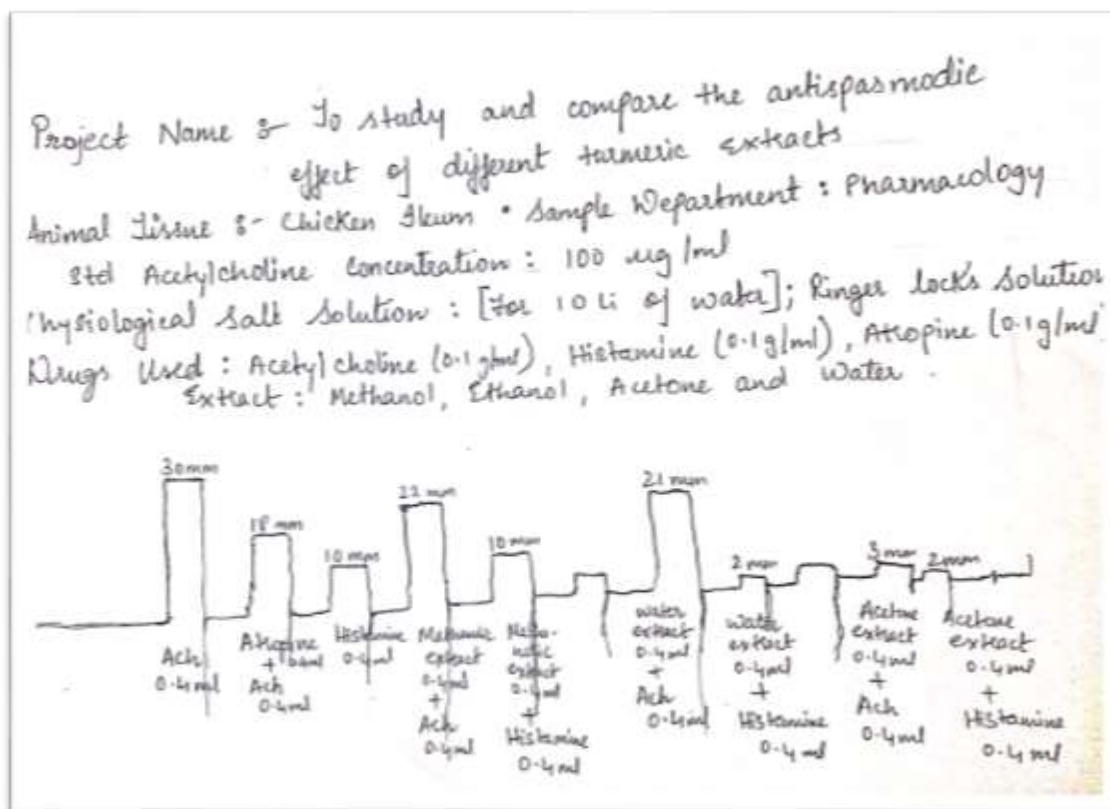 Project Name :- To study and compare the antispasmodic
effect of different turmeric extracts
Animal Tissue :- Chicken Ileum • Sample Department : Pharmacology
Std Acetylcholine Concentration : 100 ug/ml
Physiological Salt Solution : [For 10 Li of water]; Ringer lock's Solution
Drugs Used : Acetylcholine (0.1 g/ml), Histamine (0.1 g/ml), Atropine (0.1 g/ml)
Extract : Methanol, Ethanol, Acetone and Water .
30mm
18 mm
10 mm
22 mm
10 mm
21 mm
2 mm
3 mm
2 mm
Ach
0.4 ml
Atropine
+
Ach
0.4 ml
Histamine
0.4 ml
extract
0.4 ml
+
Ach
0.4 ml
extract
0.4 ml
+
Histamine
0.4 ml
water
extract
0.4 ml
+
Ach
0.4 ml
water
extract
0.4 ml
+
Histamine
0.4 ml
Acetone
extract
0.4 ml
+
Ach
0.4 ml
Acetone
extract
0.4 ml
+
Histamine
0.4 ml